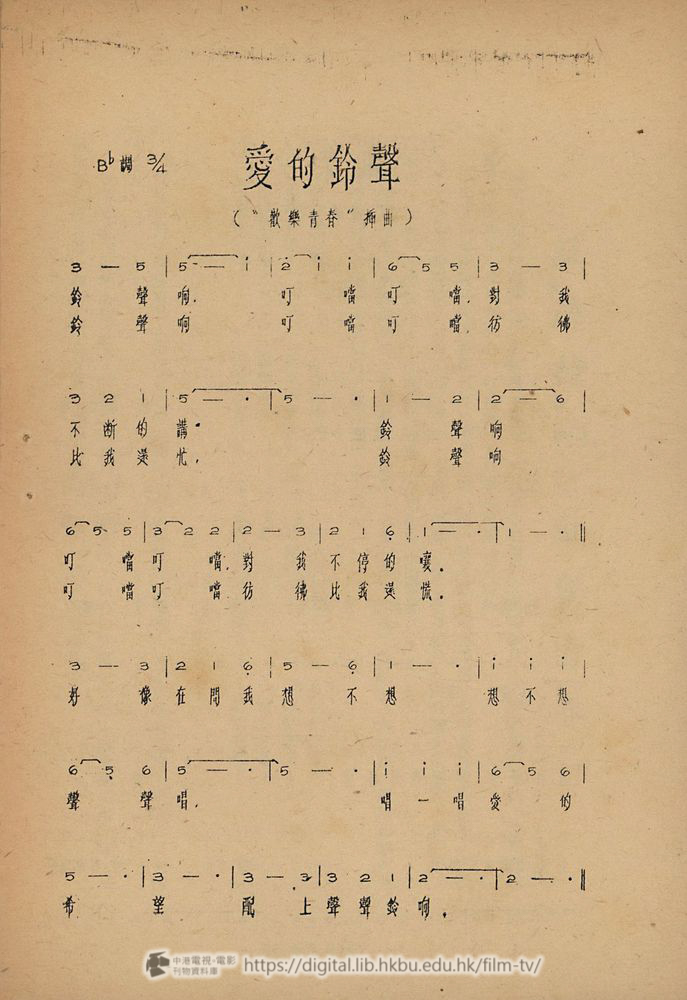 B♭調 3/4
愛的鈴聲
(“歡樂青春”插曲)
3 — 5 | 5 — i | 2 i i | 6 5 5 | 3 — 3 |
鈴 聲 响. 叮 噹 叮 噹.對 我
鈴 聲 响 叮 噹 叮 噹.彷 彿
3 2 1 | 5 — · | 5 — · | 1 — 2 | 2 — 6 |
不 断 的 講. 鈴 聲 响
比 我 還 忙. 鈴 聲 响
6 5 5 | 3 2 2 | 2 — 3 | 2 1 6̣ | 1 — · | 1 — · ‖
叮 噹 叮 噹.對 我 不 停 的 嚷.
叮 噹 叮 噹 彷 彿 比 我 還 慌.
3 — 3 | 2 1 6̣ | 5 — 6̣ | 1 — · | i i i |
好 像 在 問 我 想 不 想 想 不 想
6 5 6 | 5 — · | 5 — · | i i i | 6 5 6 |
聲 聲 唱. 唱 一 唱 愛 的
5 — · | 3 — · | 3 — 3 | 3 2 1 | 2 — · | 2 — · ‖
希 望 配 上 聲 聲 鈴 响.
中港電視-電影
刊物資料庫
https://digital.lib.hkbu.edu.hk/film-tv/